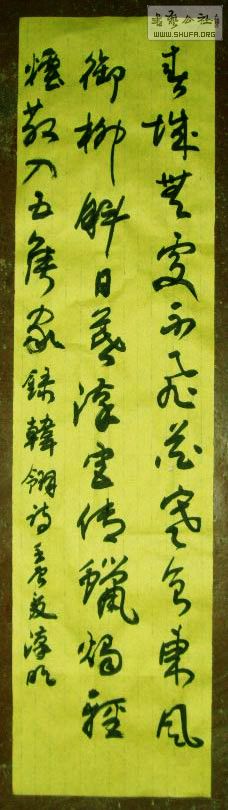 书艺公社
WWW.SHUFA.ORG
春城無處不飛花寒食東風
御柳斜日暮漢宮傳蠟燭輕
煙散入五侯家錄韓翃詩